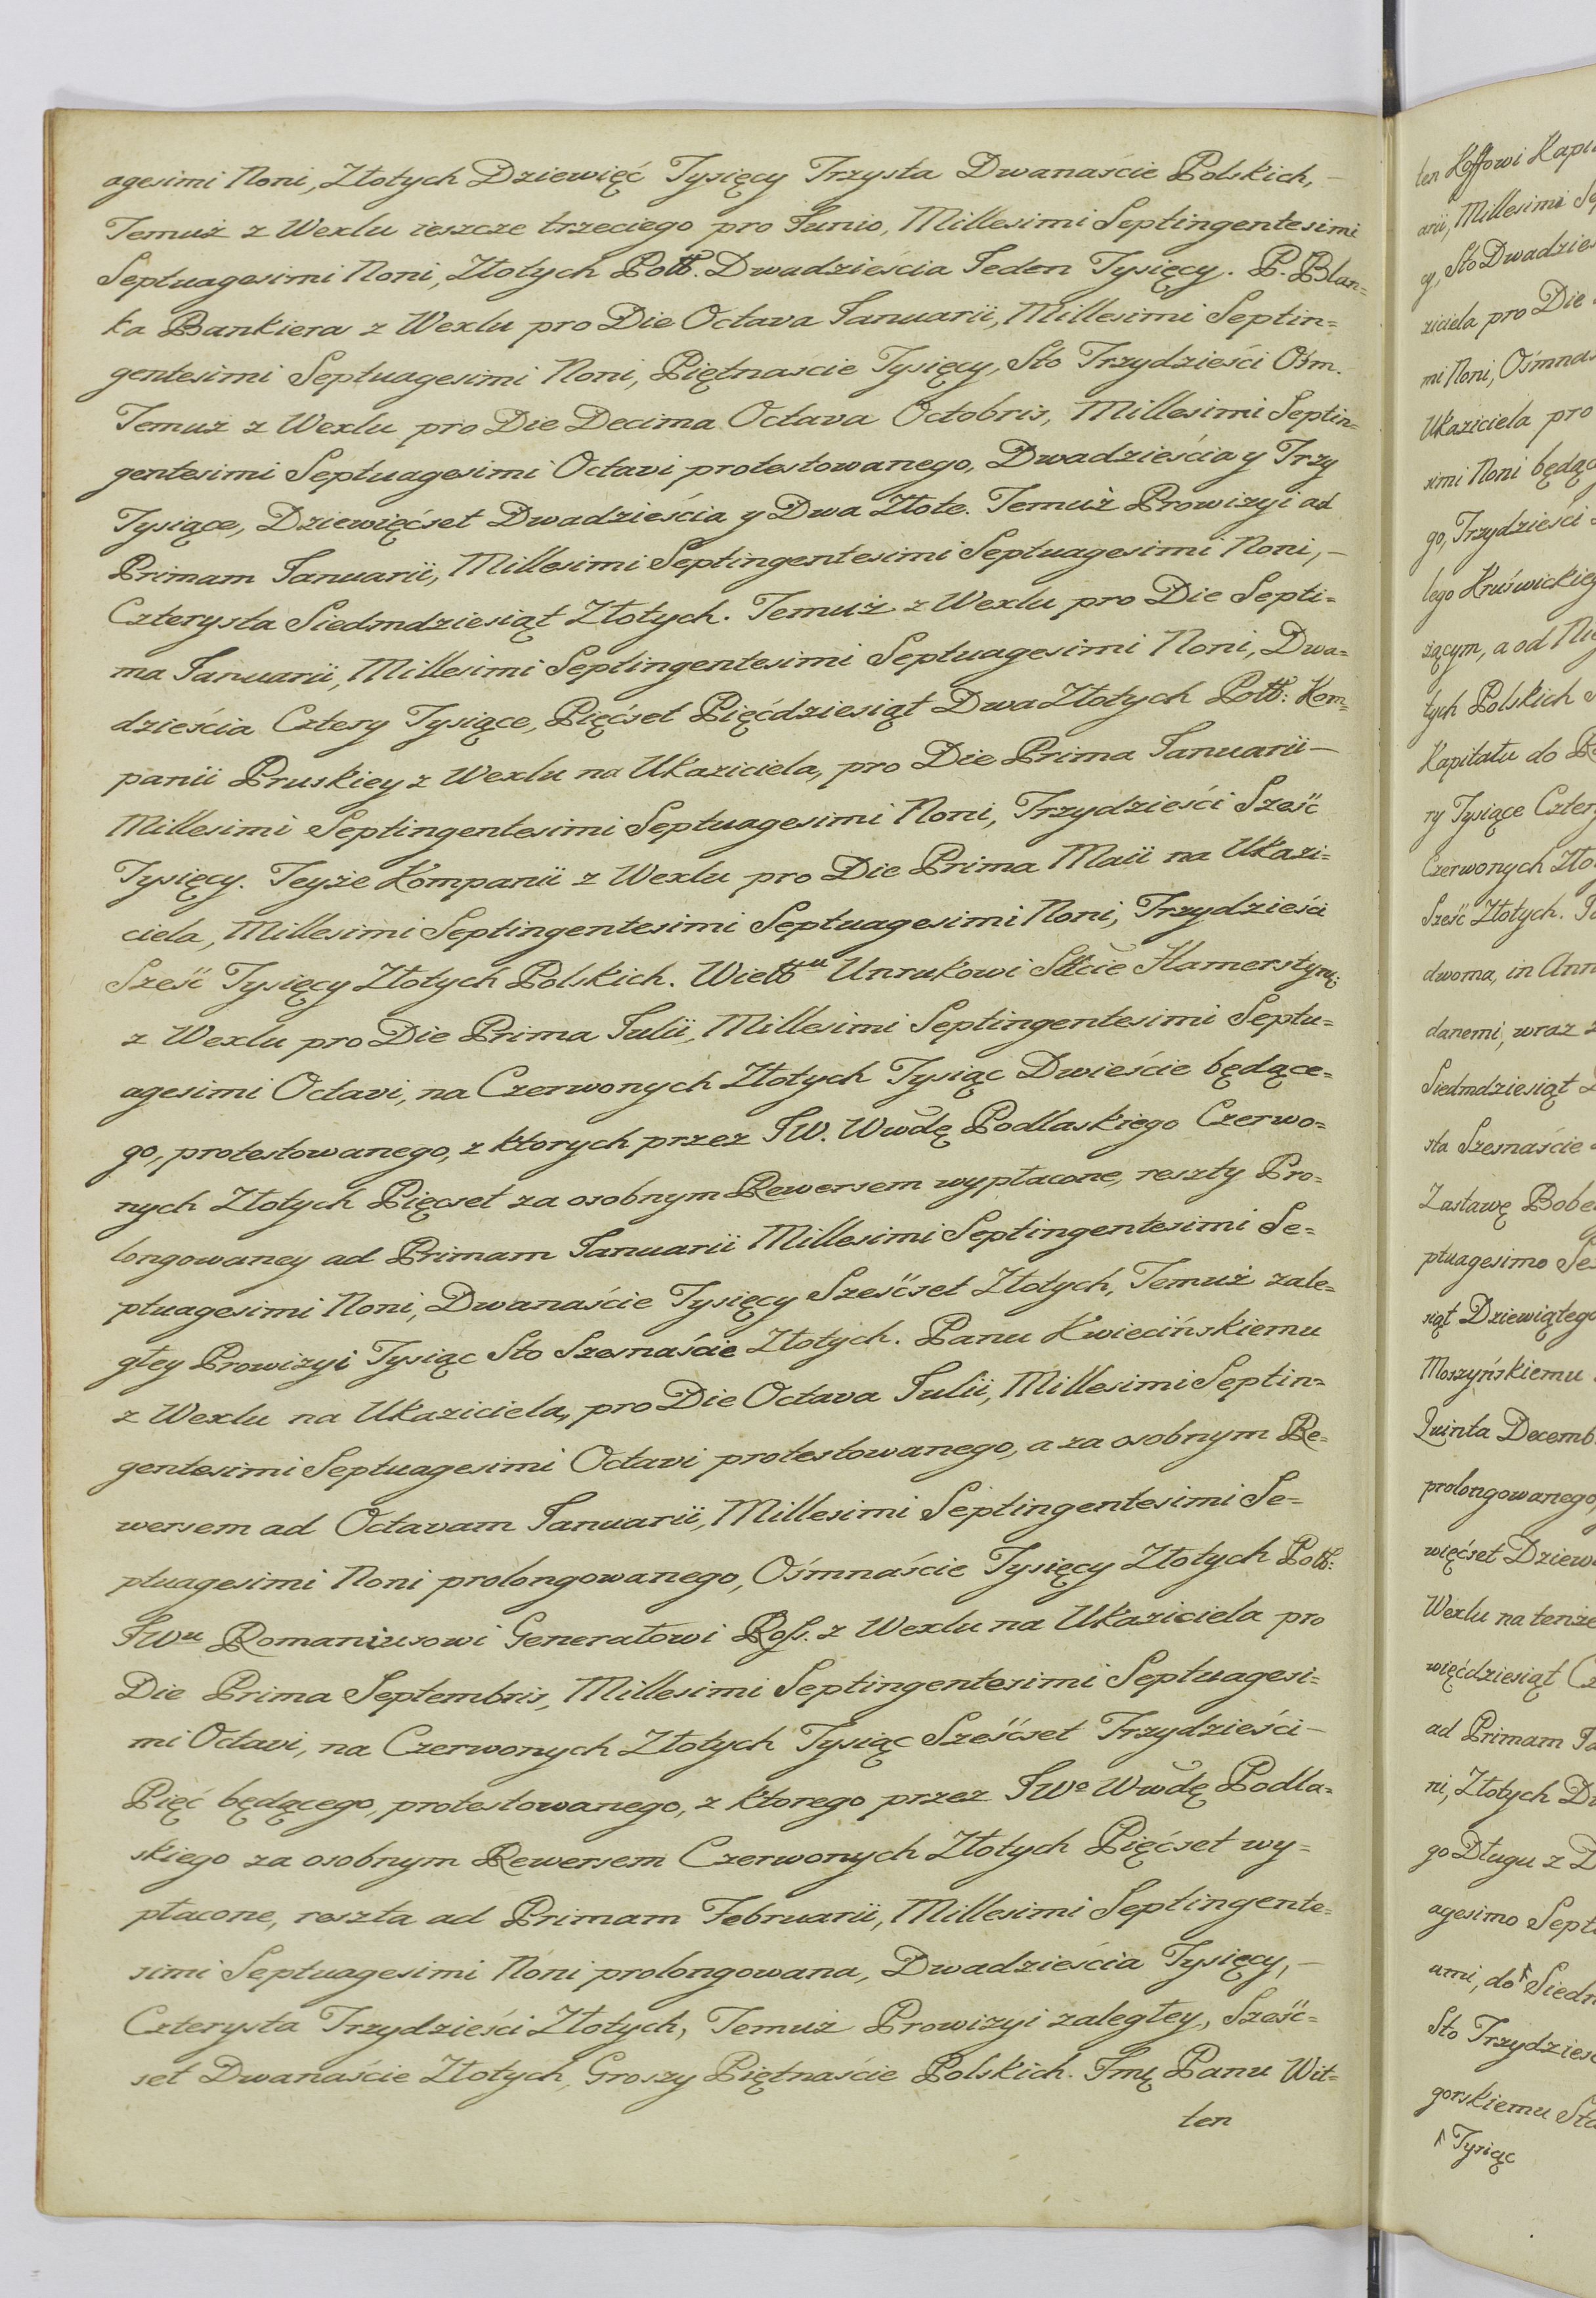 agesimi Noni, Złotych Dziewięć Tysięcy Trzysta Dwanaście Polskich, –
Temuż z Wexlu ieszcze trzeciego pro Junio, Millesimi Septingentesimi
Septuagesimi Noni, Złotych Polł. Dwadzieścia Jeden Tysięcy. P. Blan=
ka Bankiera z Wexlu pro Die Octava Januarii, Millesimi Septin=
gentesimi Septuagesimi Noni, Piętnaście Tysięcy, Sto Trzydzieści Ośm.
Temuż z Wexlu pro Die Decima Octava Octobris, Millesimi Septin=
gentesimi Septuagesimi Octavi protestowanego, Dwadzieścia y Trzy
Tysiące, Dziewięćset Dwadzieścia y Dwa Złote. Temuż Prowizyi ad
Primam Januarii, Millesimi Septingentesimi Septuagesimi Noni, –
Czterysta Siedmdziesiąt Złotych. Temuż z Wexlu pro Die Septi=
ma Januarii, Millesimi Septingentesimi Septuagesimi Noni, Dwa=
dzieścia Cztery Tysiące, Pięćset Pięćdziesiąt Dwa Złotych Polł: Kom=
panii Pruskiey z Wexlu na Ukaziciela, pro Die Prima Januarii –
Millesimi Septingentesimi Septuagesimi Noni, Trzydzieści Sześć
Tysięcy. Teyże Kompanii z Wexlu pro Die Prima Maii na Ukazi=
ciela, Millesimi Septingentesimi Septuagesimi Noni, Trzydzieści
Sześć Tysięcy Złotych Polskich. Unrukowi Stście Hamersztyn:
z Wexlu pro Die Prima Julii, Millesimi Septingentesimi Septu=
agesimi Octavi, na Czerwonych Złotych Tysiąc Dwieście będące=
go, protestowanego, z ktorych przez JW. Wwdę Podlaskiego Czerwo=
nych Złotych Pięcset za osobnym Rewersem wypłacone, reszty Pro=
longowaney ad Primam Januarii Millesimi Septingentesimi Se=
ptuagesimi Noni, Dwanaście Tysięcy Sześćset Złotych, Temuż zale=
głey Prowizyi Tysiąc Sto Szesnaście Złotych. Panu Kwiecińskiemu
z Wexlu na Ukaziciela, pro Die Octava Julii, Millesimi Septin=
gentesimi Septuagesimi Octavi protestowanego, a za osobnym Re=
wersem ad Octavam Januarii, Millesimi Septingentesimi Se=
ptuagesimi Noni prolongowanego, Ośmnaście Tysięcy Złotych Polł:
JWu Romaniusowi Generałowi Ross. z Wexlu na Ukaziciela pro
Die Prima Septembris, Millesimi Septingentesimi Septuagesi=
mi Octavi, na Czerwonych Złotych Tysiąc Sześćset Trzydzieści –
Pięć będącego, protestowanego, z ktorego przez JWo Wwdę Podla=
skiego za osobnym Rewersem Czerwonych Złotych Pięćset wy=
płacone, reszta ad Primam Februarii, Millesimi Septingente=
simi Septuagesimi Noni prolongowana, Dwadzieścia Tysięcy, –
Czterysta Trzydzieści Złotych, Temuż Prowizyi zaległey, Sześć=
set Dwanaście Złotych, Groszy Piętnaście Polskich. Jmę Panu Wit=
ten
ten Hoffowi
arii, Millesimi
cy, Sto
ziciela pro Die
mi Noni,
Ukaziciela pro
simi Noni
go, Trzydzieści
lego
żącym, a od
tych Polskich
Kapitału do
ry Tysiące
Czerwonych
Sześć Złotych.
dwoma, in
danemi, wraz
Siedmdziesiąt
sta Szesnaście
Zastawę
ptuagesimo
siąt
Moszyńskiemu
Quinta
prolongowanego,
więćset
Wexlu na tenże
więćdziesiąt
ad Primam
ni, Złotych
go Długu z
agesimo
ami, do
Sto
gorskiemu
Tysiąc